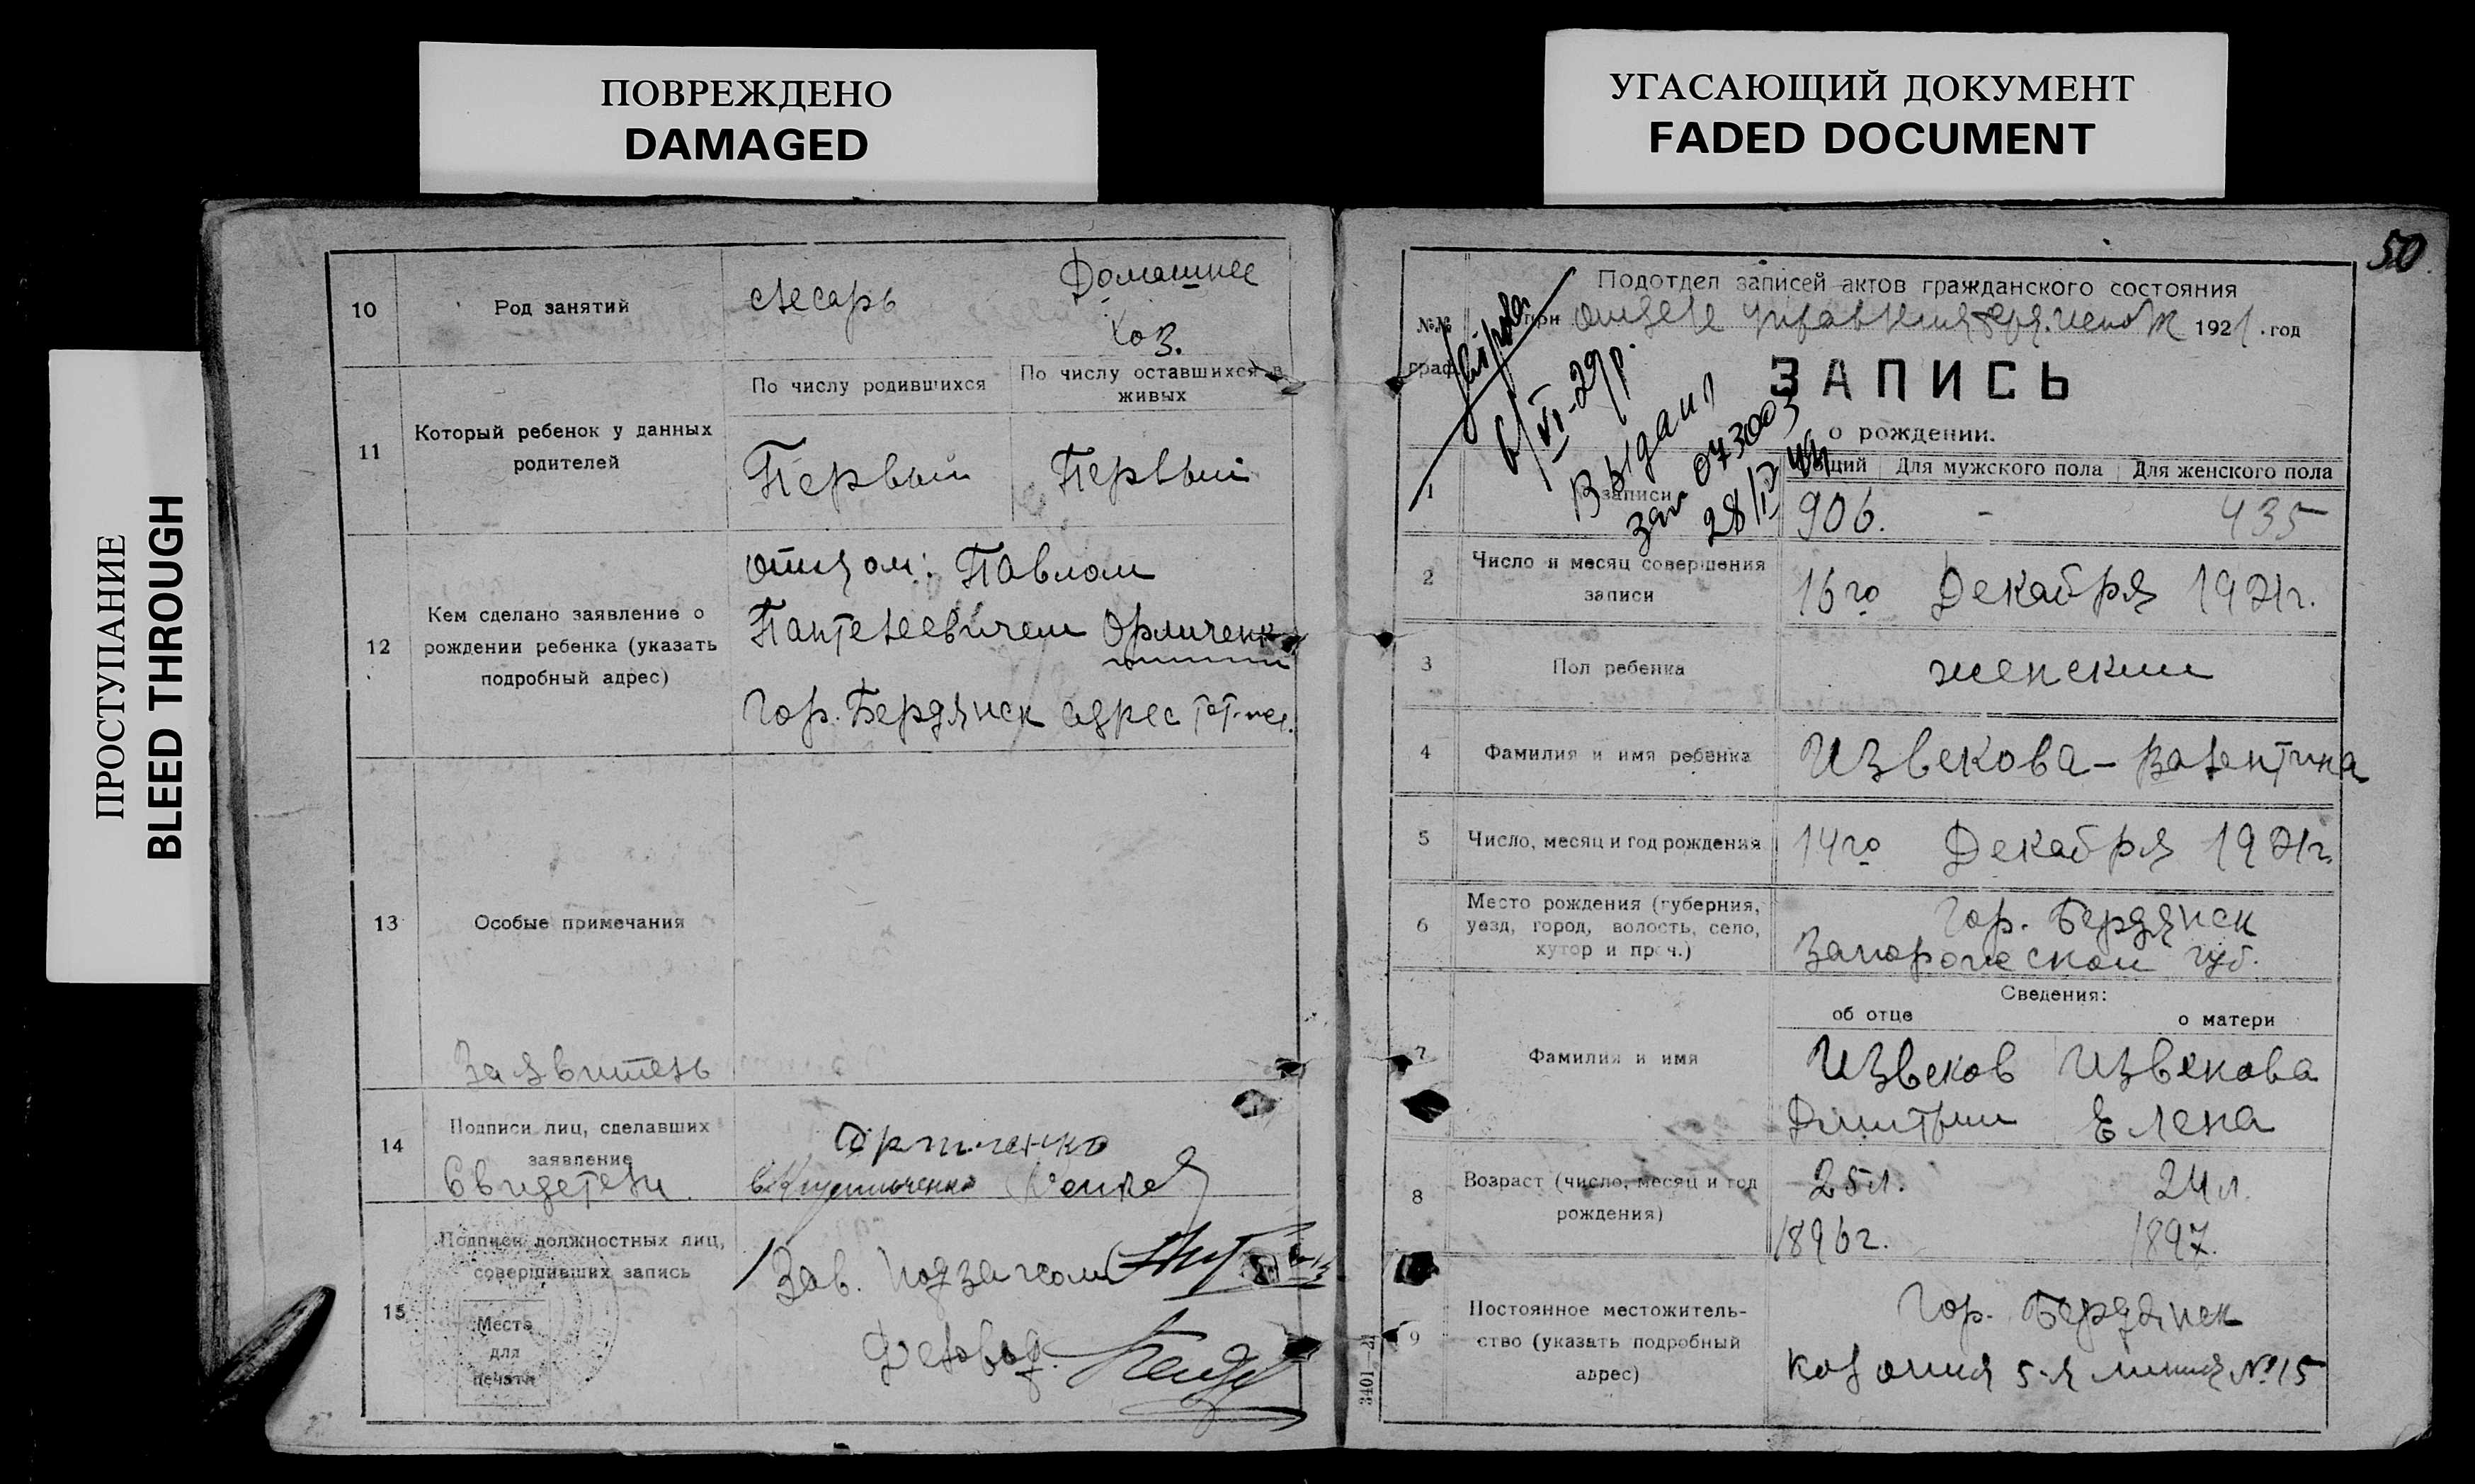 ПОВРЕЖДЕНО
DAMAGED
УГАСАЮЩИЙ ДОКУМЕНТ
FADED DOCUMENT
ПРОСТУПАНИЕ
BLEED THROUGH
10
Род занятий
слесарь
Домашнее
Хоз.
11
Который ребенок у данных
родителей
По числу родившихся
По числу оставшихся в
живых
Первый
Первый
12
Кем сделано заявление о
рождении ребенка (указать
подробный адрес)
отцом: Павлом
Пантелеевичем Орличенк
гор. Бердянск адрес
13
Особые примечания
Заявитель
14
Подписи лиц, сделавших
заявление
Свидетели.
15
Подписи должностных лиц,
совершивших запись
Место
для
печати
Зав. подзагсом
Деловод.
50
Подотдел записей актов гражданского состояния
при отделе управления 1921. год
№№
граф
ЗАПИСЬ
о рождении.
6/VI-29р.
Выдан
073003
28/IV 44
1
записи
Общий
Для мужского пола
Для женского пола
906.
-
435
2
Число и месяц совершения
записи
16го Декабря 1921г.
3
Пол ребенка
женский
4
Фамилия и имя ребенка
Извекова - Валентина
5
Число, месяц и год рождения
14го Декабря 1921г.
6
Место рождения (губерния,
уезд, город, волость, село,
хутор и проч.)
гор. Бердянск
Запорожской губ.
Сведения:
об отце
о матери
7
Фамилия и имя
Извеков
Дмитрий
Извекова
Елена
8
Возраст (число, месяц и год
рождения)
25л.
1896г.
24л.
1897.
9
Постоянное местожитель-
ство (указать подробный
адрес)
гор. Бердянск
колония 5-я линия №15
3401—21